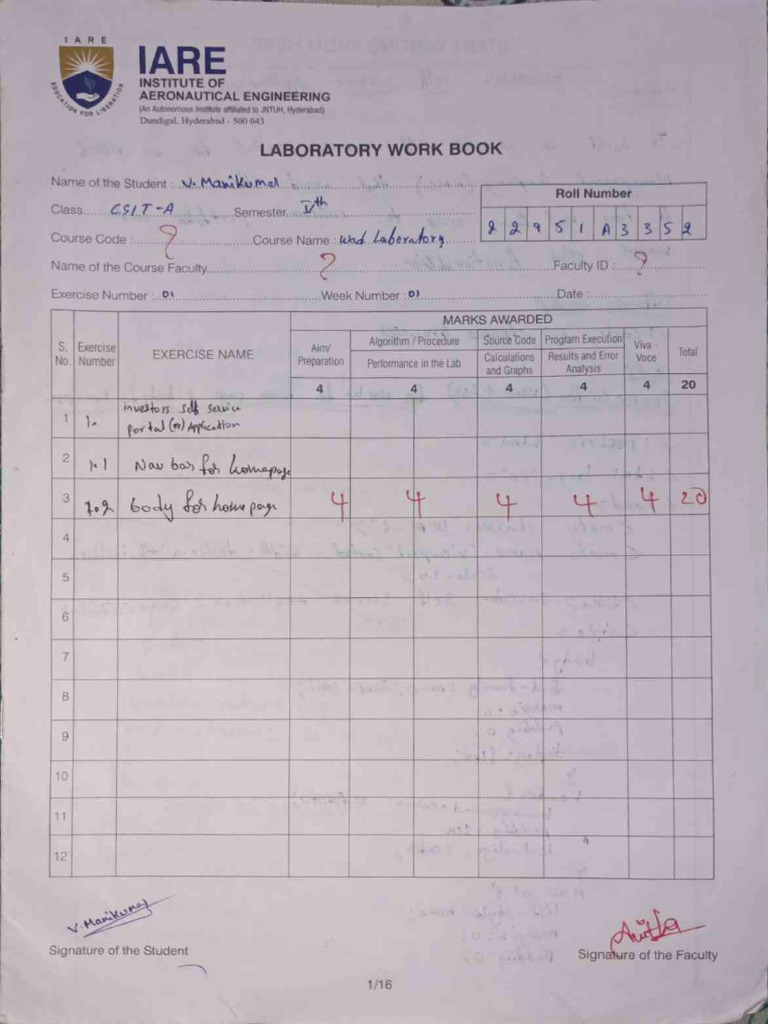 IARE
EDUCATION FOR LIBERATION
IARE
INSTITUTE OF
AERONAUTICAL ENGINEERING
(An Autonomous Institute affiliated to JNTUH, Hyderabad)
Dundigal, Hyderabad - 500 043
LABORATORY WORK BOOK
Name of the Student : V. Manikumal
Roll Number
Class CSIT-A Semester Vth
22951A3352
Course Code : ? Course Name : Wad Laboratory
Name of the Course Faculty ? Faculty ID : ?
Exercise Number : 01 Week Number : 01 Date :
S. No. Exercise Number EXERCISE NAME MARKS AWARDED
Aim/ Preparation Algorithm / Procedure Source Code Program Execution Viva - Voce Total
Performance in the Lab Calculations and Graphs Results and Error Analysis
4 4 4 4 4 20
1 1. Investors self service
portal (or) Application
2 1.1 Nav bar for homepage
3 1.2 body for home page 4 4 4 4 4 20
4
5
6
7
8
9
10
11
12
V. Manikumal
Anitha
Signature of the Student
Signature of the Faculty
1/16